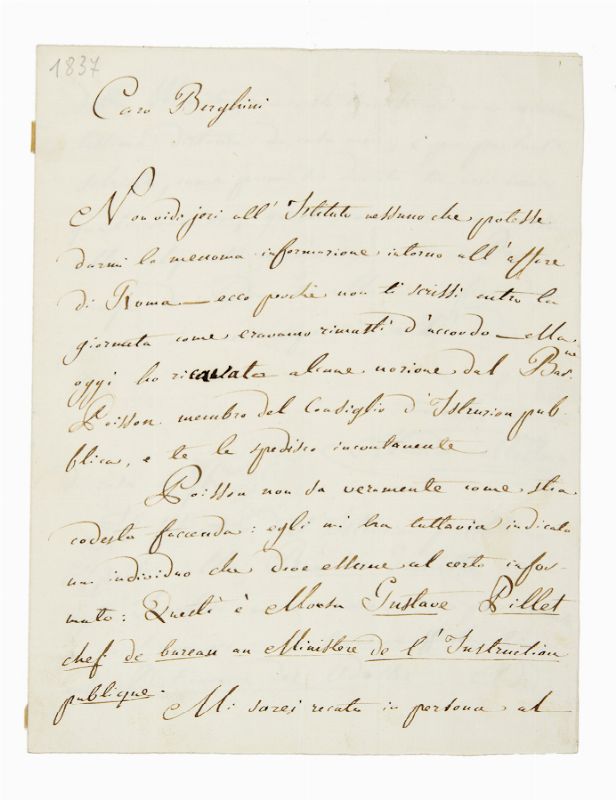 1837
Caro Berghini
Non vidi jeri all' Istituto nessuno che potesse
darmi la menoma informazione intorno all' affare
di Roma — ecco perchè non ti scrissi entro la
giornata come eravamo rimasti d'accordo — Ma
oggi ho ricavato alcune nozioni dal Bar.ne
Poisson membro del Consiglio d'Istruzion pub-
blica, e te le spedisco incontanente
Poisson non sa veramente come stia
codesta faccenda: egli mi ha tuttavia indicato
un individuo che deve esserne al certo infor-
mato: Questi è Gustave Pillet
chef de bureau au Ministère de l'Instruction
publique.
Mi sarei recato in persona al